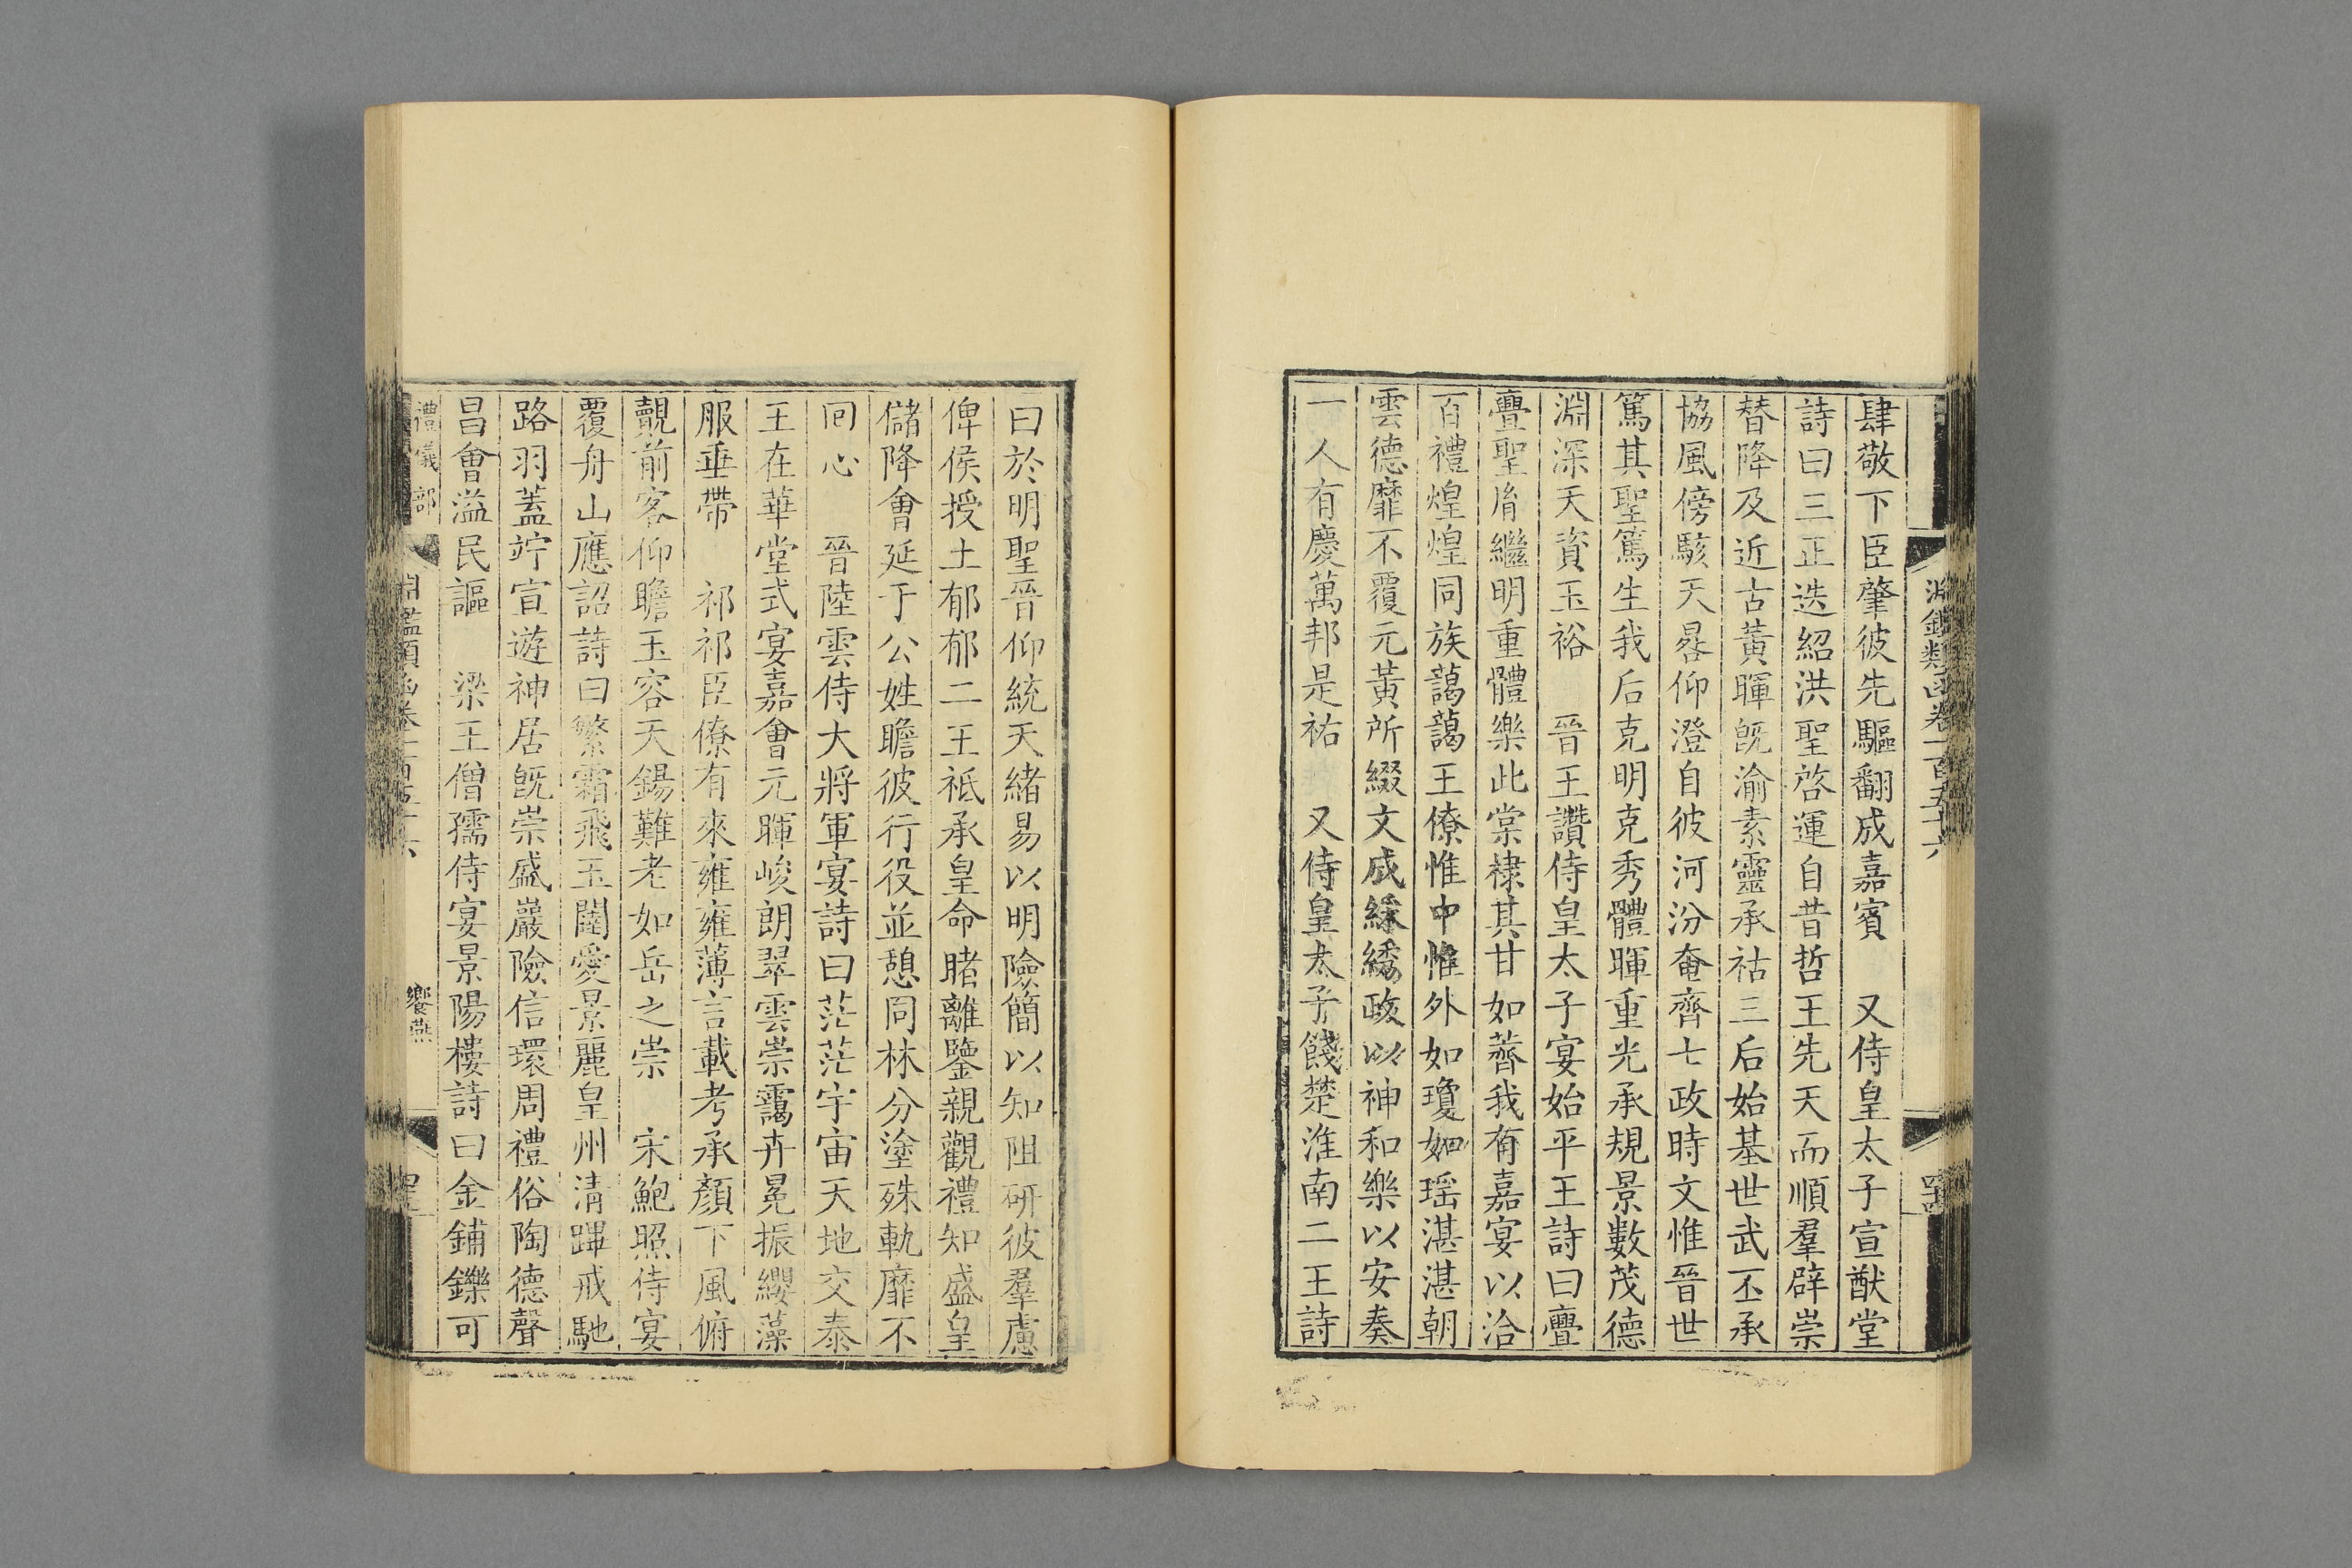 淵鑑類函卷一百五十六
肆敬下臣肇彼先驅翻成嘉賓　又侍皇太子宣猷堂
詩曰三正迭紹洪聖啓運自昔哲王先天而順羣辟崇
替降及近古黃暉旣渝素靈承祜三后始基世武丕承
協風傍駭天晷仰澄自彼河汾奄齊七政時文惟晉世
篤其聖篤生我后克明克秀體暉重光承規景數茂德
淵深天資玉裕　晉王讚侍皇太子宴始平王詩曰亹
亹聖胤繼明重體樂此棠棣其甘如薺我有嘉宴以洽
百禮煌煌同族藹藹王僚惟中惟外如瓊如瑶湛湛朝
雲德靡不覆元黃所綴文成綵繡政以神和樂以安奏
一人有慶萬邦是祐　又侍皇太子餞楚淮南二王詩
曰於明聖晉仰統天緒易以明險簡以知阻研彼羣慮
俾侯授土郁郁二王祗承皇命睹離鑒親觀禮知盛皇
儲降會延于公姓瞻彼行役並憩同林分塗殊軌靡不
囘心　晉陸雲侍大將軍宴詩曰茫茫宇宙天地交泰
王在華堂式宴嘉會元暉峻朗翠雲崇靄卉冕振纓藻
服垂帶　祁祁臣僚有來雍雍薄言載考承顏下風俯
覿前客仰瞻玉容天錫難老如岳之崇　宋鮑照侍宴
覆舟山應詔詩曰繁霜飛玉闥愛景麗皇州清蹕戒馳
路羽蓋竚宣遊神居旣崇盛巖險信環周禮俗陶德聲
昌會溢民謳　梁王僧孺侍宴景陽樓詩曰金鋪鑠可
禮儀部　饗燕